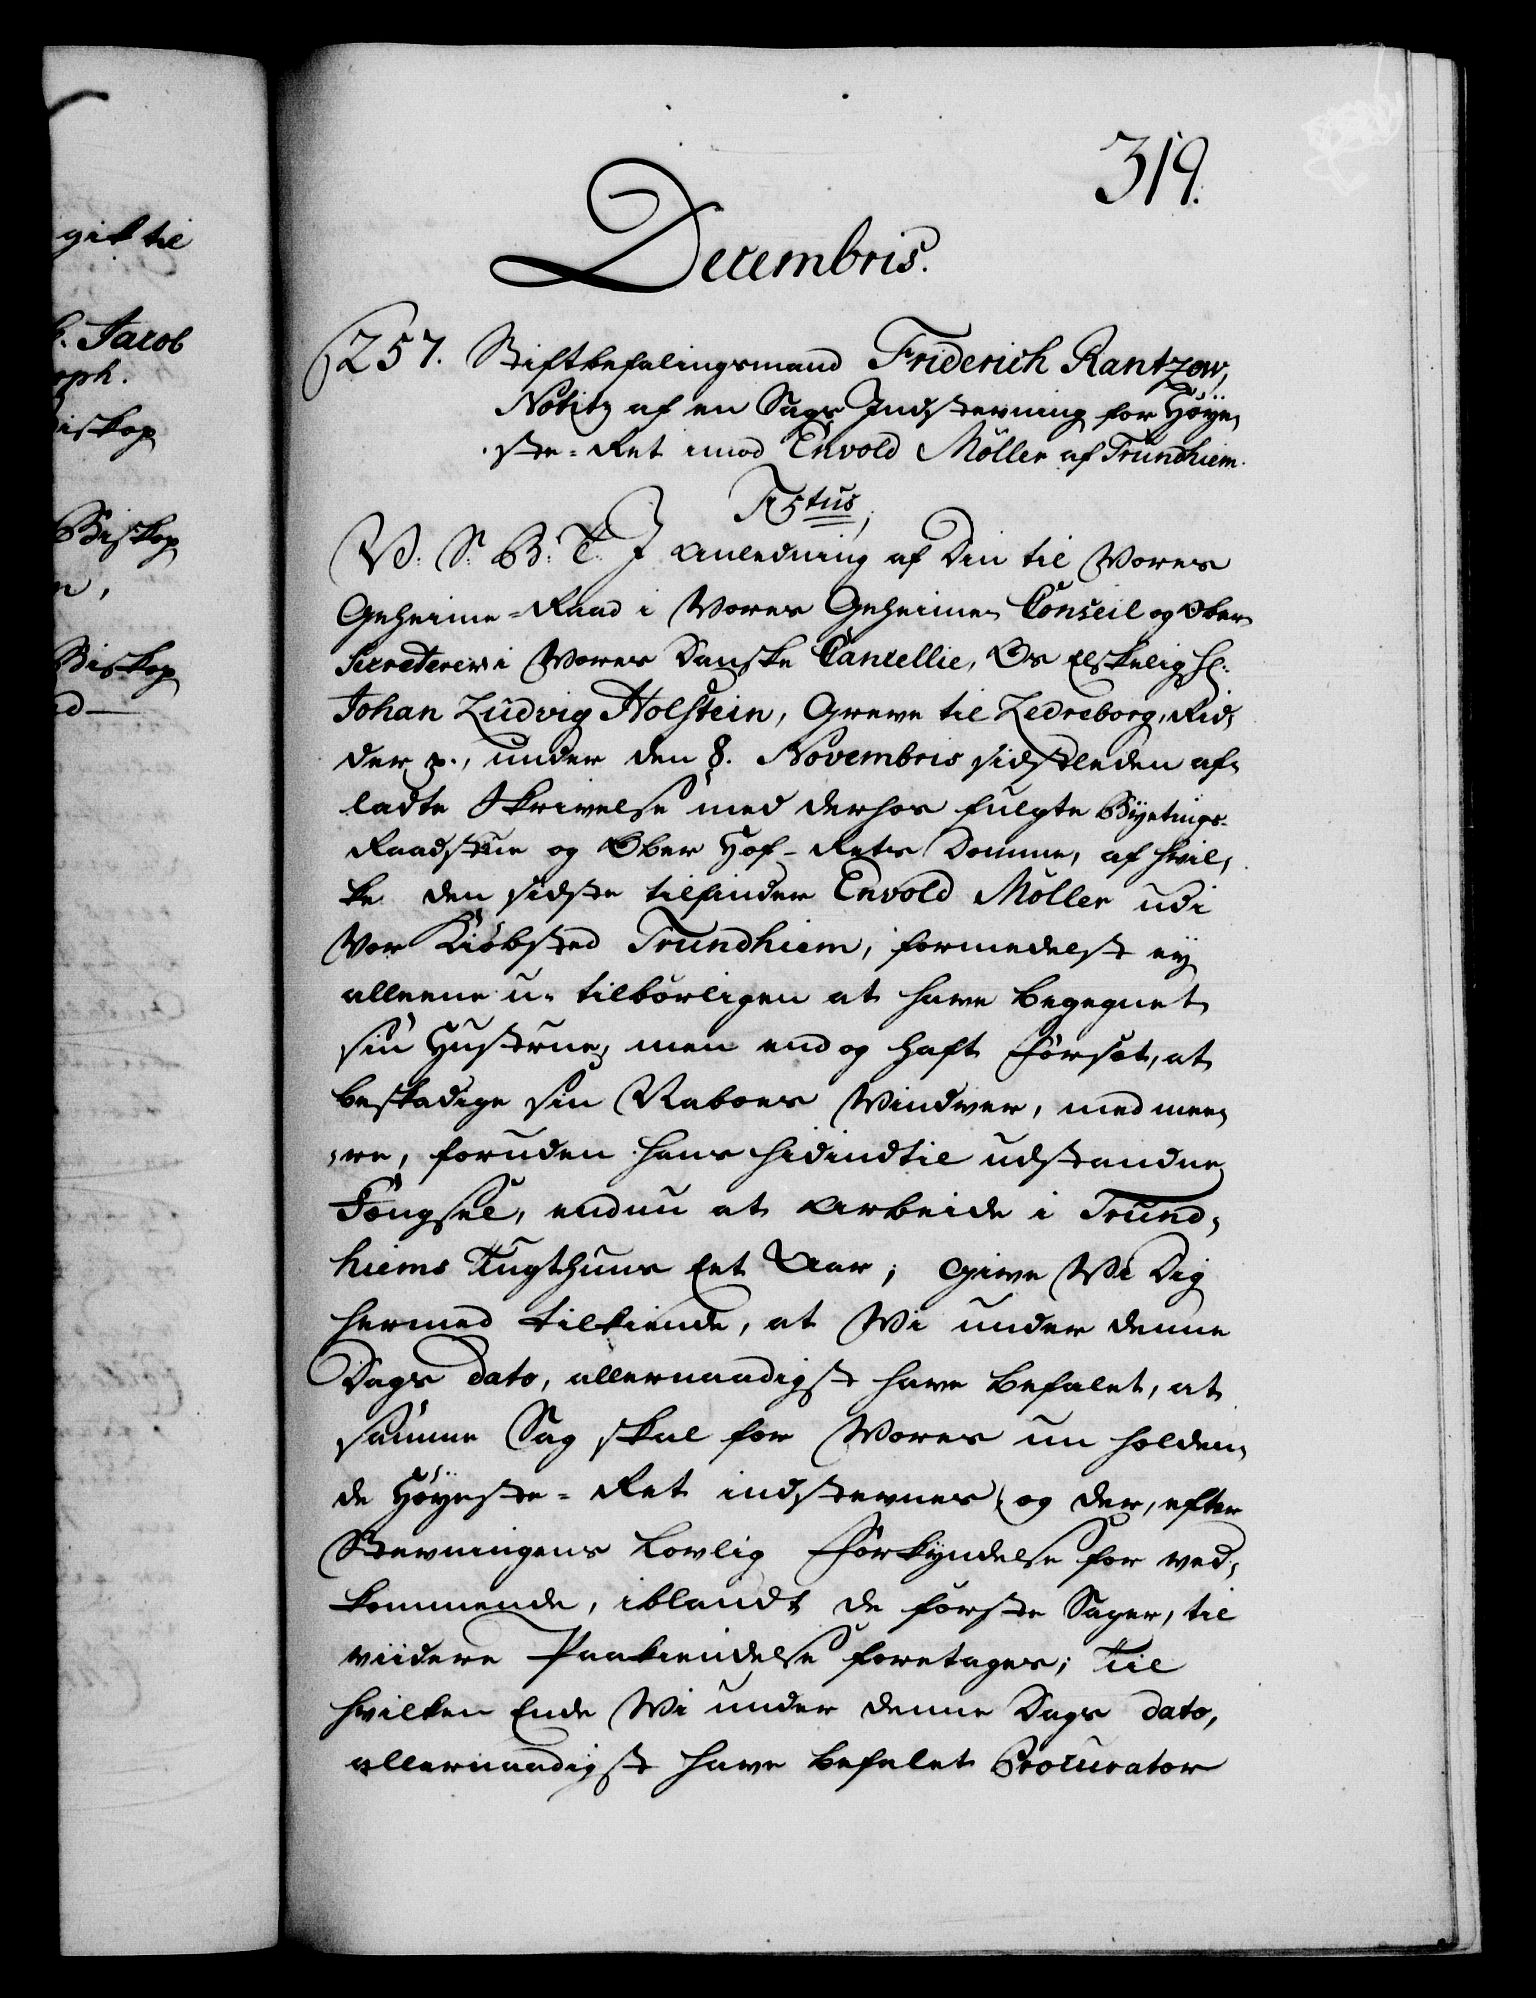 319.
Decembris.
257. Stiftbefalingsmand Friderich Rantzow,
Notitz af en Sags Indstevning for Höye,
ste-Ret imod Envold Möller af Trundhiem.
C5tus,
V: S: B: T: I Anledning af Din til Vores
Geheime-Raad i Vores Geheime Conseil og Ober
Secreterer i Vores Danske Cancellie, Os Elskelig Hr:
Johan Ludvig Holstein, Greve til Ledreborg, Rid,
der p., under den 8. Novembris sidstleden af,
ladte Skrivelse med derhos fulgte Byetings-
Raadstue og Ober Hof-Rets Domme, af hvil,
ke den sidste tilfinder Envold Möller udi
Vor Kiöbsted Trundhiem, formedelst ey
alleene u-tilbörligen at have begegnet
sin Hustrue, men end og haft Forsæt, at
beskadige sin Naboes Vindver, med mee,
re, foruden hans hidindtil udstandne
Fængsel, endnu at Arbeide i Trund,
hiems Tugthuus Eet Aar; Give Vi Dig
hermed tilkiende, at Vi under denne
Dags dato, allernaadigst have befalet, at
samme Sag skal for Vores nu holden,
de Höyeste-Ret indstevnes, og der, efter
Stevningens lovlig Forkyndelse for ved,
kommende, iblandt de förste Sager, til
viidere Paakiendelse foretages; Til
hvilken Ende Vi under denne Dags dato,
allernaadigst have befalet Procurator
git til
Jacob
oph.
iskop
Biskop
n,
Biskop